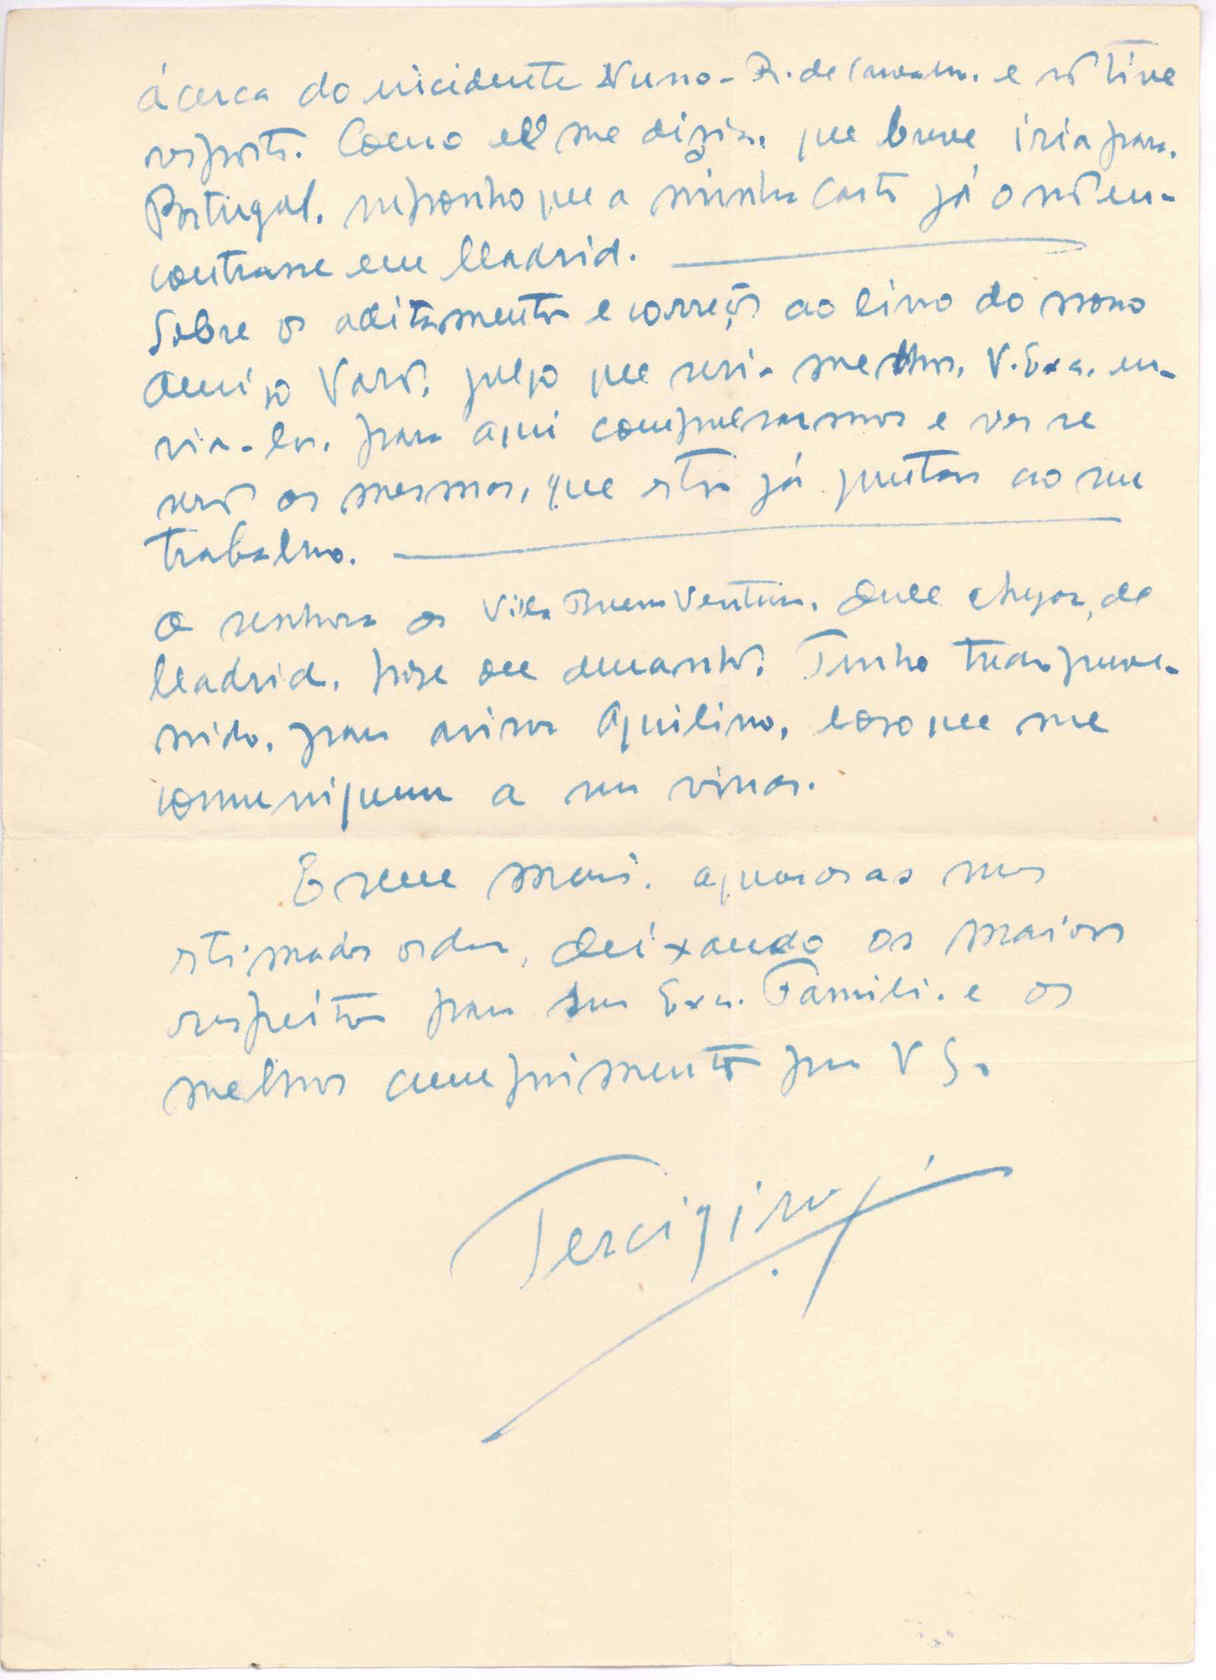 ácerca do incidente Nuno - R. de Carvalho. e não tive
resposta. Como elle me dizia, que breve iria para
Portugal, suponho que a minha carta já o não en-
contrasse em Madrid.
Sobre os aditamentos e correções ao livro do nosso
amigo Varão, julgo que seria melhor, V. Exa. en-
via-los, para aqui compulsarmos e ver se
serão os mesmos, que estão já juntos ao seu
trabalho.
A senhora da Vila Buena Ventura, deve chegar, de
Madrid, hoje ou amanhã. Tenho tudo preve-
nido, para avisar Aquilino, logo que me
comuniquem a sua vinda.
E sem mais, aguardo as suas
estimadas ordens, deixando os maiores
respeitos para sua Exa. Familia e os
melhores cumprimentos para V. S.